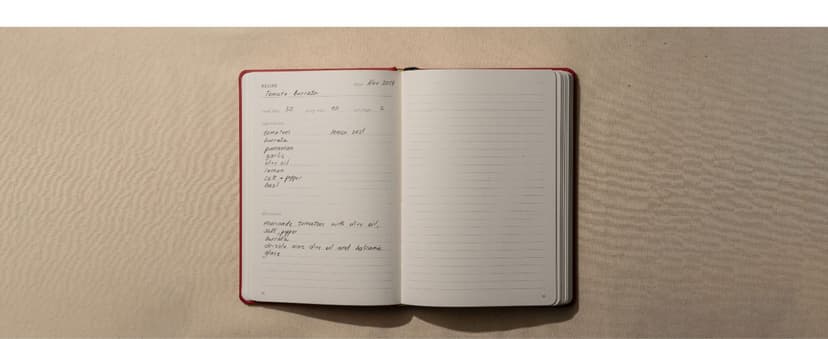 RECIPE
Nov 2019
Tomato Burrata
tomatoes lemon zest
burrata
parmesan
garlic
olive oil
lemon
salt + pepper
basil
marinade tomatoes with olive oil,
salt, pepper
burrata
drizzle olive oil and balsamic
glaze